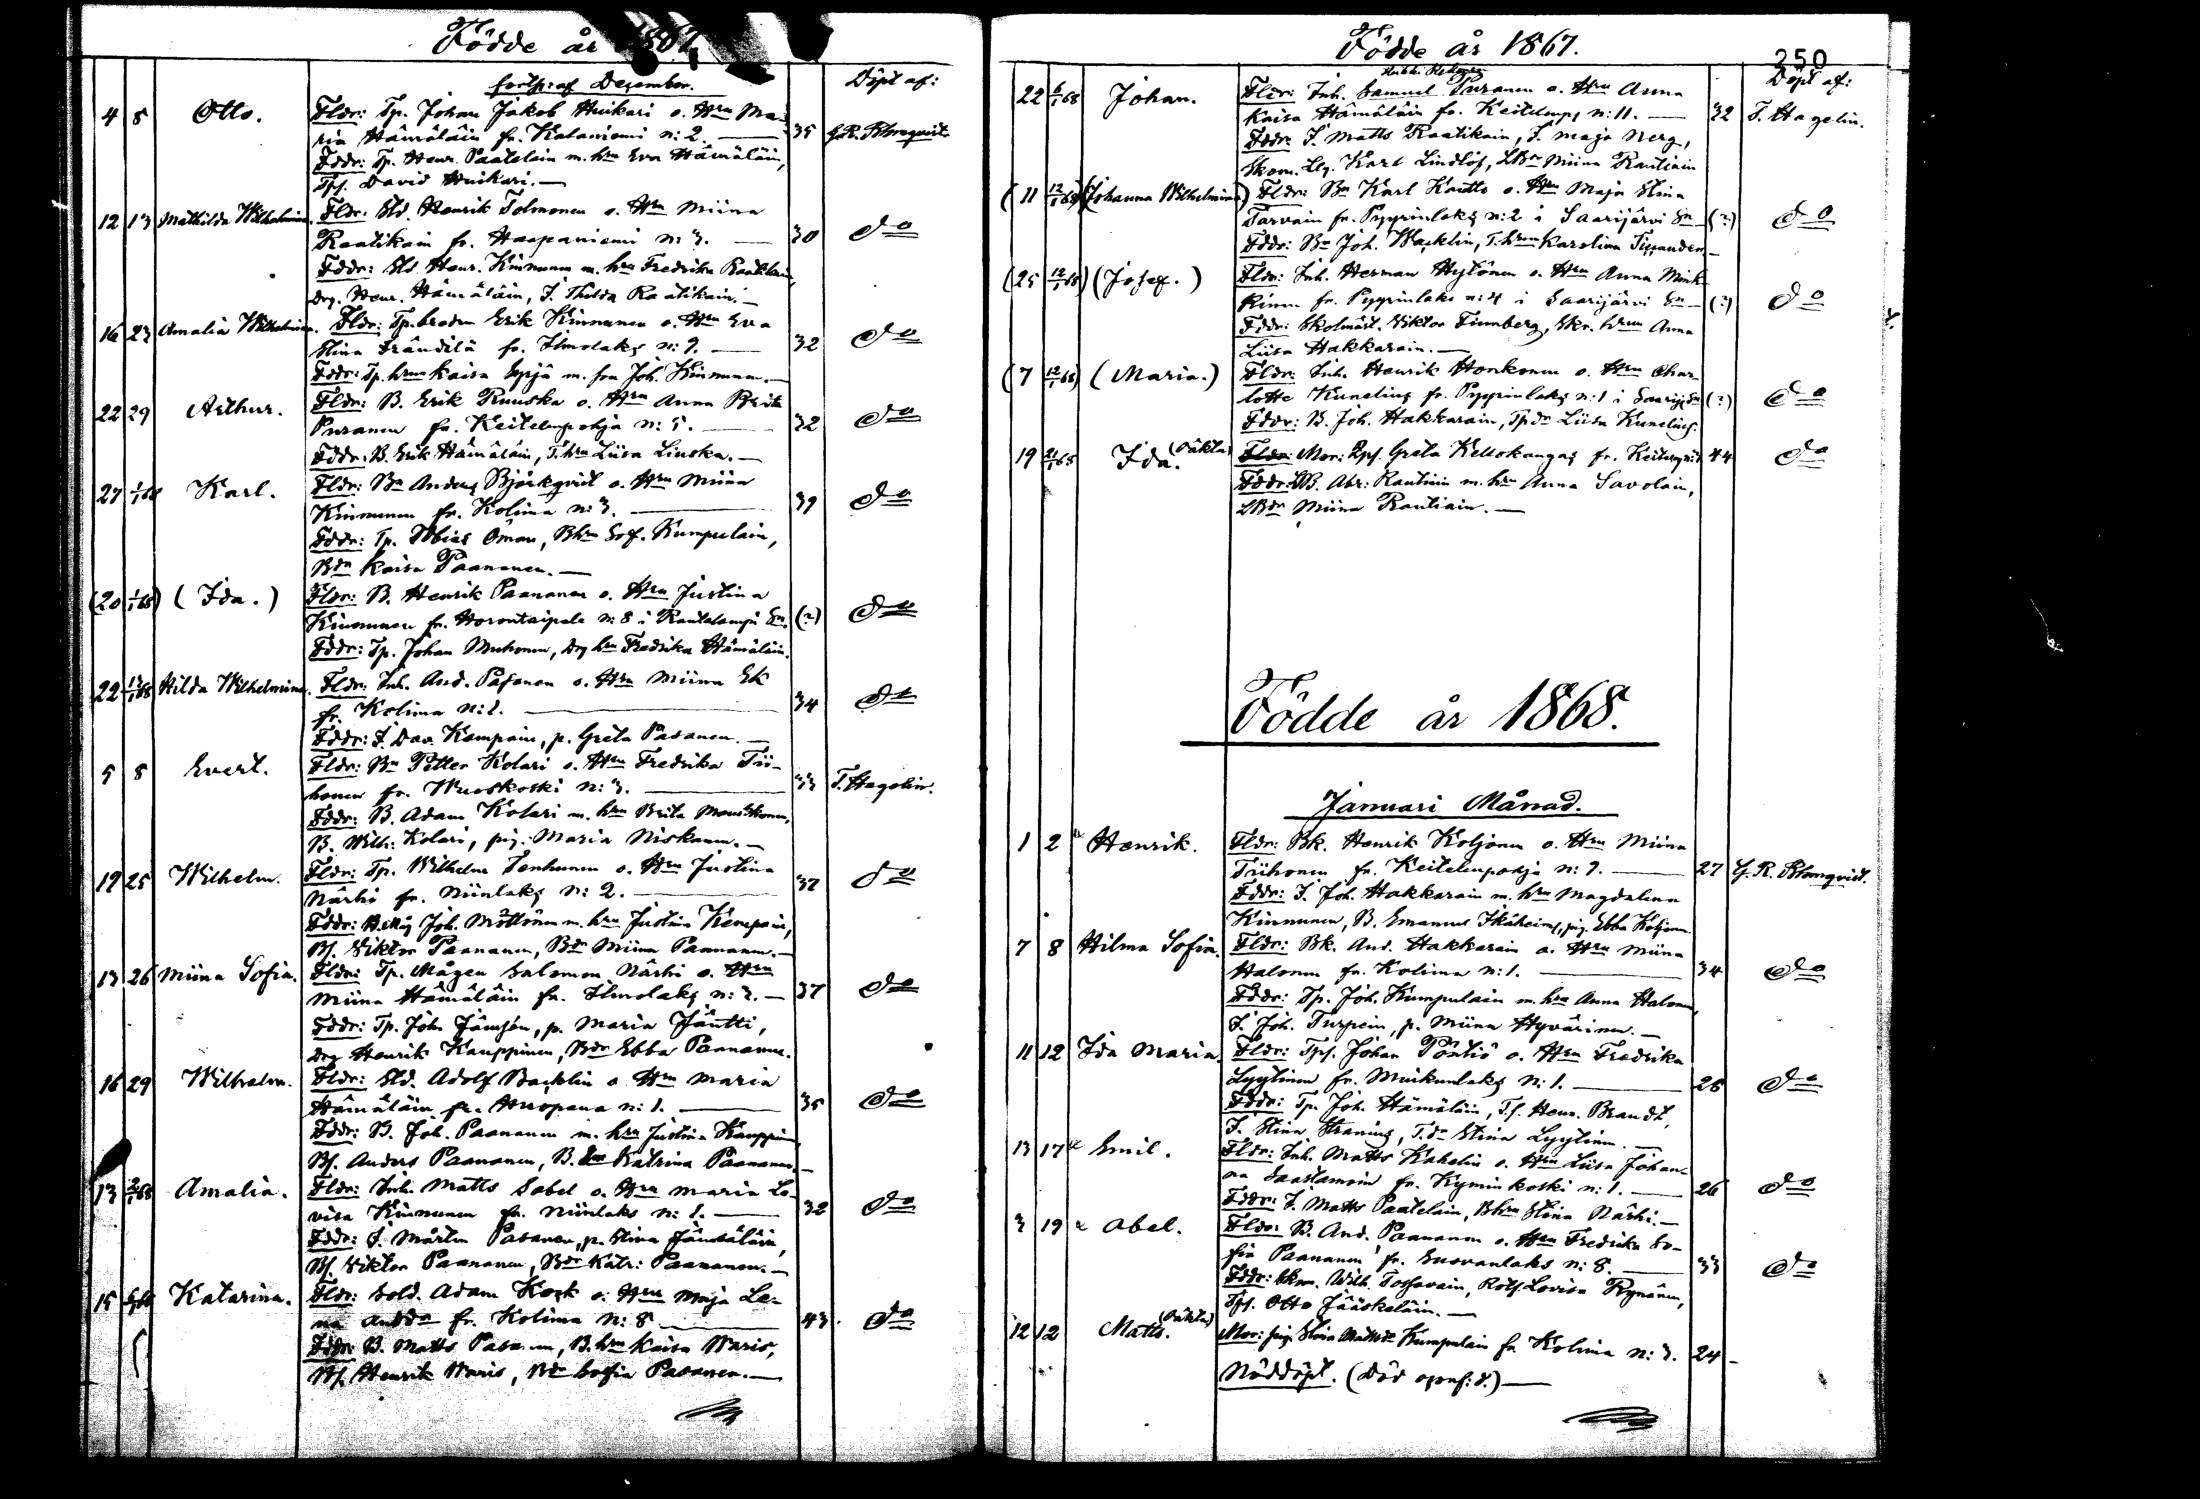 Födde år 1867.
fortfr: af Dezember.
Döpt af:
4 8 Otto. Fldr: Tp. Johan Jakob Huikari o. Hru Ma-
ria Hämäläin fr. Kataniemi n: 2. 35 G.R. Blomqvist
Fddr: Tp. Henr. Paatelain m. hru Eva Hämäläin,
Tps. David Huikari.
12 13 Mathilda Wilhelmina. Fldr: Sld. Henrik Tolmonen o. Hru Miina
Raatikain fr. Haapaniemi n: 3. 30 do
Fddr: Sld. Henr. Kinnunen m. hru Fredrika Raatikain,
Drg. Henr. Hämäläin, J. Thilda Raatikain.
16 23 Amalia Wilhelmina. Fldr: Tp. brodren Erik Kinnunen o. Hru Eva
Stina Frändilä fr. Ilmolaks n: 9. 32 do
Fddr: Tp. hrun Kaisa m. son Joh. Kinnunen.
22 29 Arthur. Fldr: B. Erik Ruuska o. Hru Anna Brita
Puranen fr. Keitelenpohja n: 5. 32 do
Fddr: B. Erik Hämäläin, T. hru Liisa Liuska.
27 1/1 68 Karl. Fldr: Bn Anders Björkqvist o. Hru Miina
Kinnunen fr. Kolima n: 3. 39 do
Fddr: Tp. Tobias Öman, Bhru Sof. Kumpulain,
Bdr Kaisa Paananen.
(20 1/1 68) (Ida.) Fldr: B. Henrik Paananen o. Hru Justina
Kinnunen fr. Horontaipale n: 8 i Rautalampi Sn. (?) do
Fddr: Tp. Johan Muhonen, Drg hru Fredrika Hämäläin.
22 12/1 68 Hilda Wilhelmina. Fldr: Inh. And. Pasanen o. Hru Miina Ek
fr. Kolima n: 1. 34 do
Fddr: J. Dav. Kampain, p. Greta Pasanen.
5 8 Evert. Fldr: Bn Petter Kolari o. Hru Fredrika Tii-
honen fr. Wuoskoski n: 3. 33 T. Hagelin.
Fddr: B. Adam Kolari m. hru Brita
B. Wilh: Kolari, pig. Maria Niskanen.
19 25 Wilhelm. Fldr: Tp. Wilhelm Tenhunen o. Hru Justina
Närhi fr. Niinlaks n: 2. 37 do
Fddr: B.Måg Joh. Möttönen m. hru Justina Kempain,
Bs. Viktor Paananen, Bdr Miina Paananen.
13 26 Miina Sofia. Fldr: Tp. Mågen Salomon Närhi o. Hru
Miina Hämäläin fr. Ilmolaks n: 3. 37 do
Fddr: Tp. Joh. Jämsén, p. Maria Jäntti,
Drg Henrik Kauppinen, Bdr Ebba Paananen.
16 29 Wilhelm. Fldr: Sld. Adolf Backlin o. Hru Maria
Hämäläin fr. Huopana n: 1. 35 do
Fddr: B. Joh. Paananen m. hru Justina Kauppinen
Bs. Anders Paananen, B. Katrina Paananen.
13 2/1 68 Amalia. Fldr: Inh. Matts Sabel o. Hru Maria Lo-
visa Kinnunen fr. Niinlaks n: 1. 32 do
Fddr: J. Mårten Pasanen, p. Stina Jämsäläin,
Bs. Viktor Paananen, Bdr Katr: Paananen.
15 Katarina. Fldr: Sold. Adam Kock o. Hru Maja Le-
na fr. Kolima n: 8 43. do
Fddr: B. Matts Pasanen, B. hru Kaisa Waris,
Bs. Henrik Waris, Bdr Sofia Pasanen.
Födde år 1867.
250
Döpt af:
22 6/1 68 Johan. Fldr: Inh. Samuel Puranen o. Hru Anna
Kaisa Hämäläin fr. Keitelenp, n: 11. 32 T. Hagelin.
Fddr: J. Matts Raatikain, J. Maja Nerg,
Skom. Lg. Karl Lindlöf, LBdr Miina Rautiain
(11 12/1 68) (Johanna Wilhelmina) Fldr: Bn Karl Kautto o. Hru Maja Stina
Tarvain fr. Pyyrinlaks n: 2 i Saarijärvi Sn (?) do
Fddr: Bn Joh. Wacklin, T. hrun Karolina
(25 12/1 68) (Josef.) Fldr: Inh. Herman Hytönen o. Hru Anna Mink-
kinen fr. Pyyrinlaks n: 4 i Saarijärvi Sn (?) do
Fddr: Skolmäst. Viktor Finnberg, Skr. hrun Anna
Liisa Hakkarain.
(7 12/1 68) (Maria.) Fldr: Inh. Henrik Honkonen o. Hru Char-
lotte Kunelius fr. Pyyrinlaks n: 1 i Saarij. Sn (?) do
Fddr: B. Joh. Hakkarain, Tpdr Liisa Kunelius.
19 21/1 68 Ida. (Oäkta) Mor: Lps. Greta Kellokangas fr. Keitelep n: 2 44 do
Fddr: LB. Abr: Rautiain m. hru Anna Savolain,
LBdr Miina Rautiain.
Födde år 1868.
Januari Månad.
1 2 Henrik. Fldr: Bk. Henrik Koljonen o. Hru Miina
Tiihonen fr. Keitelenpohja n: 7. 27 G. R. Blomqvist.
Fddr: J. Joh. Hakkarain m. hru Magdalena
Kinnunen, B. Emanuel Ikäheim, pig. Ebba Koljonen
7 8 Hilma Sofia. Fldr: Bk. And. Hakkarain o. Hru Miina
Halonen fr. Kolima n: 1. 34 do
Fddr: Tp. Joh. Kumpulain m. hru Anna Halonen,
J. Joh. Turpein, p. Miina Hyvärinen.
11 12 Ida Maria. Fldr: Tps. Johan Pöntiö o. Hru Fredrika
Lyytinen fr. Muikunlaks n: 1. 28 do
Fddr: Tp. Joh. Hämäläin, Ts. Henr. Brandt,
J. Stina Straning, T. dr Stina Lyytinen.
13 17 Emil. Fldr: Inh. Matts Kahelin o. Hru Liisa Johan-
na Saastamoin fr. Kyminkoski n: 1. 26 do
Fddr: J. Matts Paatelain, Bhru Stina Närhi.
3 19 Abel. Fldr: B. And. Paananen o. Hru Fredrika So-
fia Paananen fr. Suovanlaks n: 8. 33 do
Fddr: Skom. Wilh. Tossavain, Rotf. Lovisa Rynänen,
Tps. Otto Jääskeläin.
12 12 Matts. (Oäkta) Mor: pig. Stina Mattsdr Kumpulain fr. Kolima n: 3. 24
Nöddöpt. (Död)